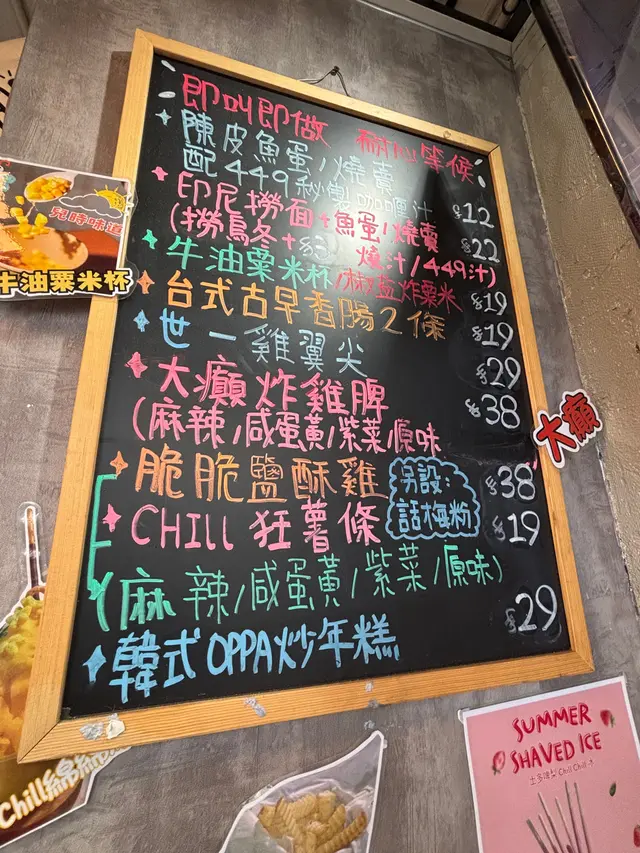 即叫即做 耐心等候
陳皮魚蛋/燒賣
配449秒製咖喱汁 $12
印尼撈面+魚蛋/燒賣 $22
(撈烏冬+$3) 燒汁/449汁)
牛油粟米杯/椒鹽炸粟米 $19
台式古早香腸2條 $19
世一雞翼尖 $29
大癲炸雞脾 $38
(麻辣/咸蛋黃/紫菜/原味
脆脆鹽酥雞 $38
另設:
話梅粉
CHILL 狂薯條 $19
(麻辣/咸蛋黃/紫菜/原味)
韓式OPPA炒年糕 $29
兒時味道
牛油粟米杯
大癲
Chill
SUMMER
SHAVED ICE
士多啤梨 Chill Chill 冰